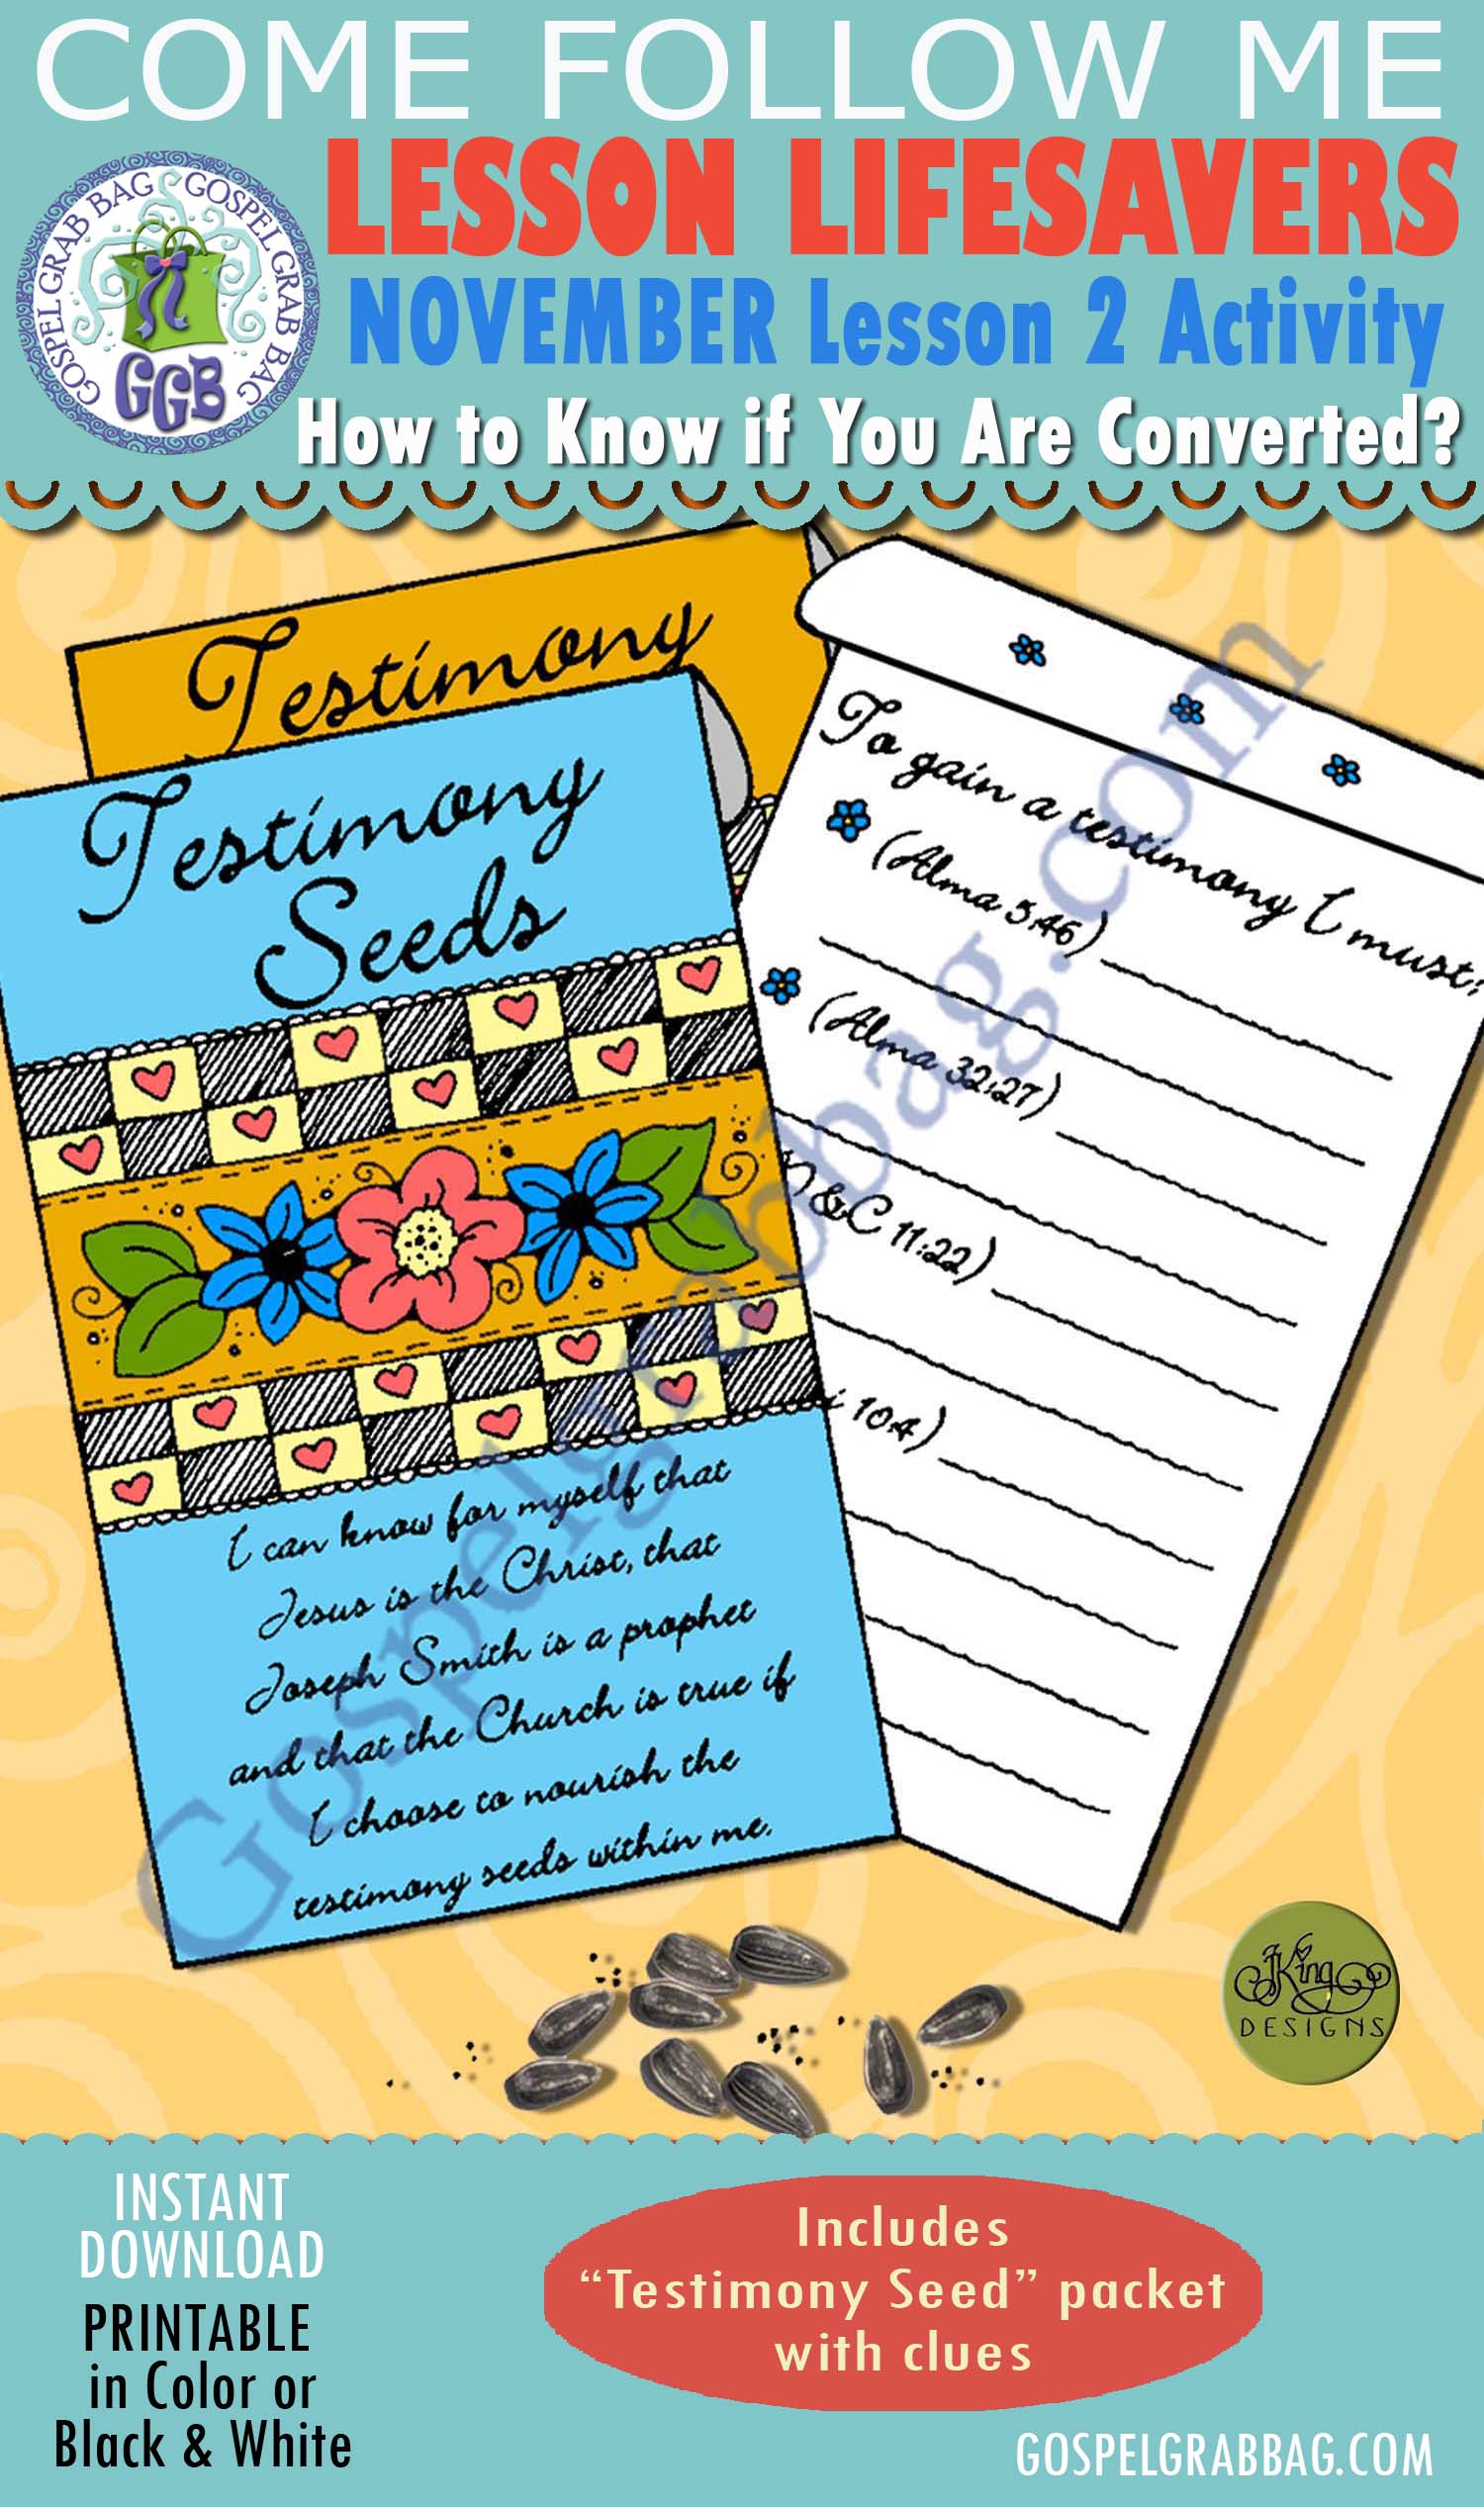 COME FOLLOW ME
LESSON LIFESAVERS
NOVEMBER Lesson 2 Activity
How to Know if You Are Converted?
GOSPEL GRAB BAG GOSPEL GRAB BAG
GGB
Testimony
Testimony
Seeds
I can know for myself that
Jesus is the Christ, that
Joseph Smith is a prophet
and that the Church is true if
I choose to nourish the
testimony seeds within me.
To gain a testimony I must:
(Alma 5:46)
(Alma 32:27)
D&C 11:22)
i 10:4)
Gospelgrabbag.com
JKing
DESIGNS
INSTANT
DOWNLOAD
PRINTABLE
in Color or
Black & White
Includes
“Testimony Seed” packet
with clues
GOSPELGRABBAG.COM